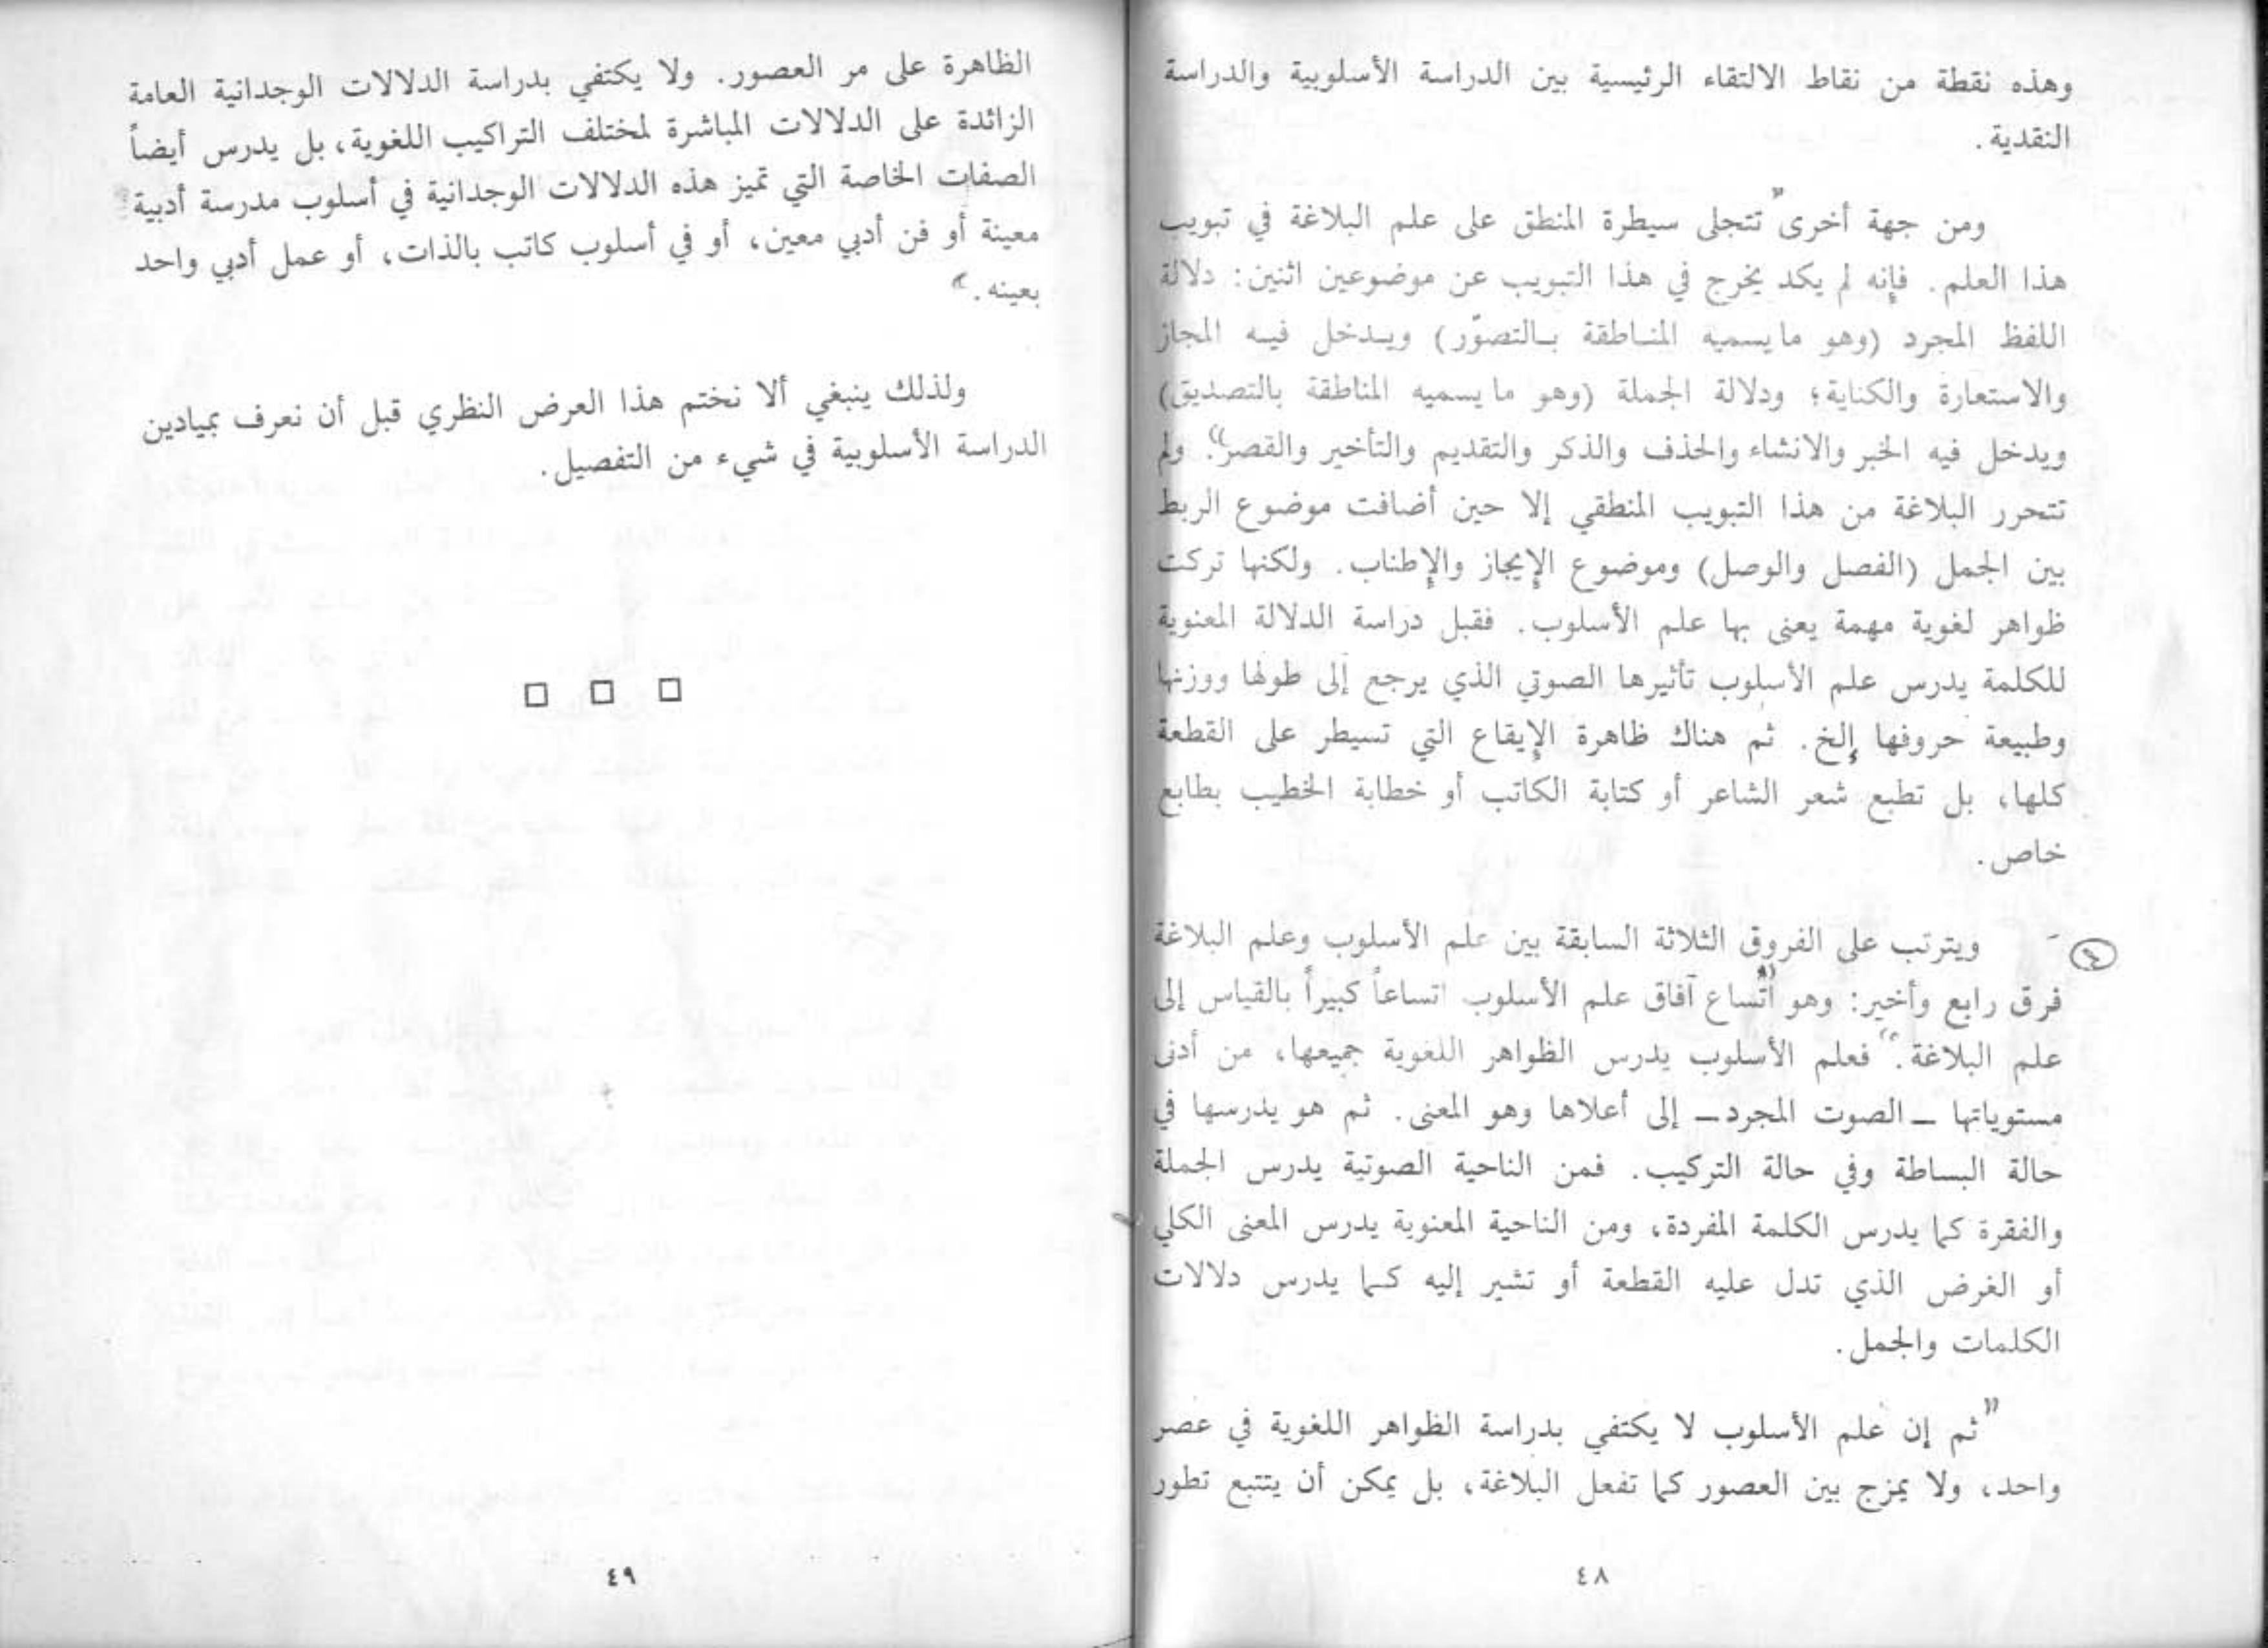 وهذه نقطة من نقاط الالتقاء الرئيسية بين الدراسة الأسلوبية والدراسة
النقدية.
ومن جهة أخرى تتجلى سيطرة المنطق على علم البلاغة في تبويب
هذا العلم. فإنه لم يكد يخرج في هذا التبويب عن موضوعين اثنين: دلالة
اللفظ المجرد (وهو ما يسميه المناطقة بالتصوّر) ويدخل فيه المجاز
والاستعارة والكناية؛ ودلالة الجملة (وهو ما يسميه المناطقة بالتصديق)
ويدخل فيه الخبر والانشاء والحذف والذكر والتقديم والتأخير والقصر. ولم
تتحرر البلاغة من هذا التبويب المنطقي إلا حين أضافت موضوع الربط
بين الجمل (الفصل والوصل) وموضوع الإيجاز والإطناب. ولكنها تركت
ظواهر لغوية مهمة يعنى بها علم الأسلوب. فقبل دراسة الدلالة المعنوية
للكلمة يدرس علم الأسلوب تأثيرها الصوتي الذي يرجع إلى طولها ووزنها
وطبيعة حروفها إلخ. ثم هناك ظاهرة الإيقاع التي تسيطر على القطعة
كلها، بل تطبع شعر الشاعر أو كتابة الكاتب أو خطابة الخطيب بطابع
خاص.
٤ - ويترتب على الفروق الثلاثة السابقة بين علم الأسلوب وعلم البلاغة
فرق رابع وأخير: وهو "اتّساع آفاق علم الأسلوب اتساعاً كبيراً بالقياس إلى
علم البلاغة." فعلم الأسلوب يدرس الظواهر اللغوية جميعها، من أدنى
مستوياتها ــ الصوت المجرد ــ إلى أعلاها وهو المعنى. ثم هو يدرسها في
حالة البساطة وفي حالة التركيب. فمن الناحية الصوتية يدرس الجملة
والفقرة كما يدرس الكلمة المفردة، ومن الناحية المعنوية يدرس المعنى الكلي
أو الغرض الذي تدل عليه القطعة أو تشير إليه كما يدرس دلالات
الكلمات والجمل.
"ثم إن علم الأسلوب لا يكتفي بدراسة الظواهر اللغوية في عصر
واحد، ولا يمزج بين العصور كما تفعل البلاغة، بل يمكن أن يتتبع تطور
٤٨
الظاهرة على مر العصور. ولا يكتفي بدراسة الدلالات الوجدانية العامة
الزائدة على الدلالات المباشرة لمختلف التراكيب اللغوية، بل يدرس أيضاً
الصفات الخاصة التي تميز هذه الدلالات الوجدانية في أسلوب مدرسة أدبية
معينة أو فن أدبي معين، أو في أسلوب كاتب بالذات، أو عمل أدبي واحد
بعينه."
ولذلك ينبغي ألا نختم هذا العرض النظري قبل أن نعرف بميادين
الدراسة الأسلوبية في شيء من التفصيل.
٤٩